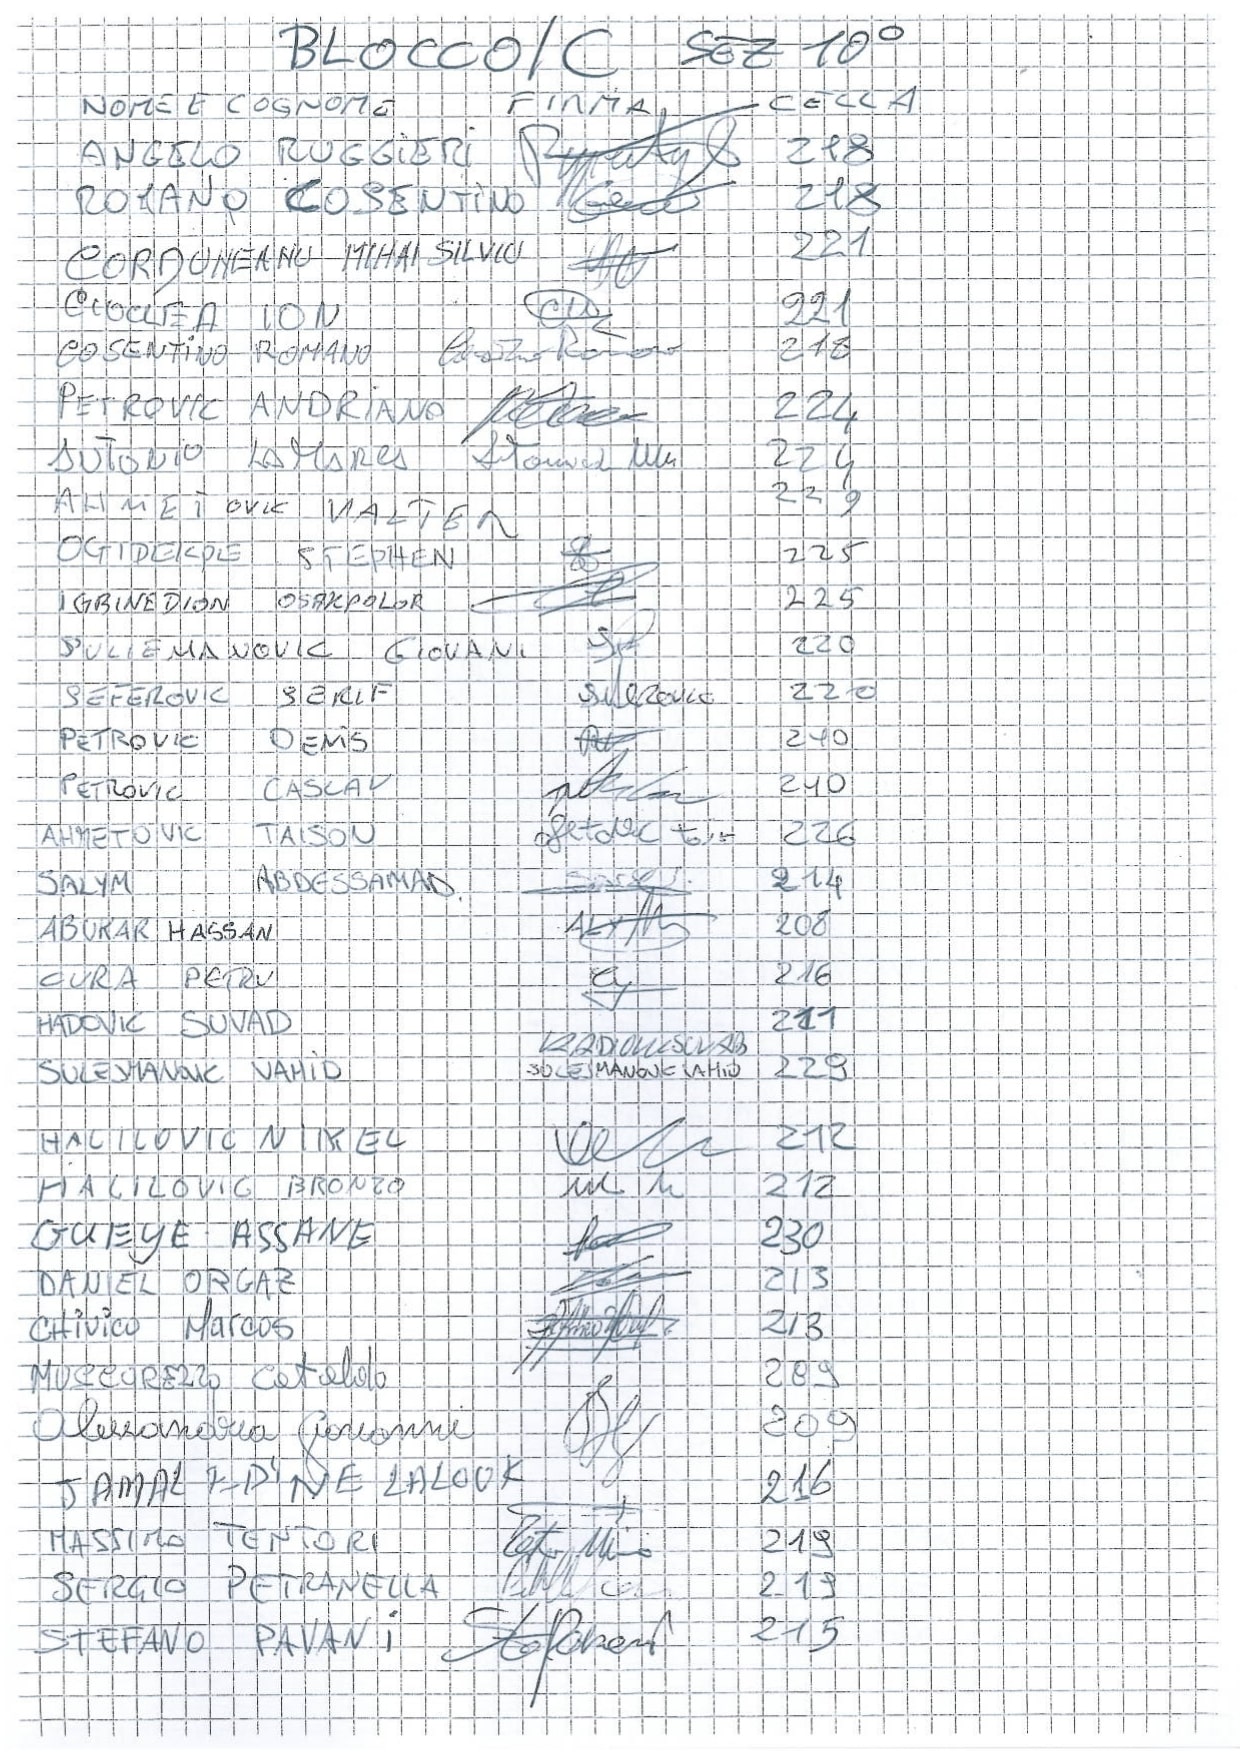 BLOCCO/C SEZ 10°
NOME E COGNOME FIRMA CELLA
ANGELO RUGGIERI 218
ROMANO COSENTINO 218
CORDUNEANU MIHAI SILVIU 221
CIOCLEA ION 221
COSENTINO ROMANO Cosentino Romano 218
PETROVIC ANDRIANO 224
ANTONIO 224
AHMETOVIC VALTER 229
OGIDEKPE STEPHEN 225
IGBINEDION OSAKPOLOR 225
SULIEMANOVIC GIOVANI 220
SEFEROVIC SERIF 220
PETROVIC DENIS 210
PETROVIC CASLAV 210
AHMETOVIC TAISON 226
SALYM ABDESSAMAD. 214
ABUKAR HASSAN 208
CURA PETRU 216
HADOVIC SUVAD 211
SULEJMANOVIC VAHID SULEJMANOVIC VAHID 229
HALILOVIC NIKEL 212
HALILOVIC BRONZO 212
GUEYE ASSANE 230
DANIEL ORGAZ 213
CHIVICO Marcos 213
Cataldo 209
Alessandria Giovanni 209
JAMAL LALOUK 216
MASSIMO TENTORI 219
SERGIO PETRANELLA 219
STEFANO PAVANI 215